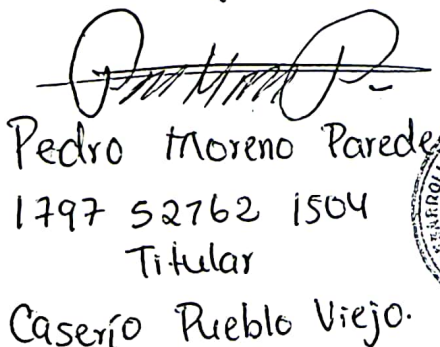 Pedro Moreno Parede
1797 52762 1504
Titular
Caserío Pueblo Viejo.